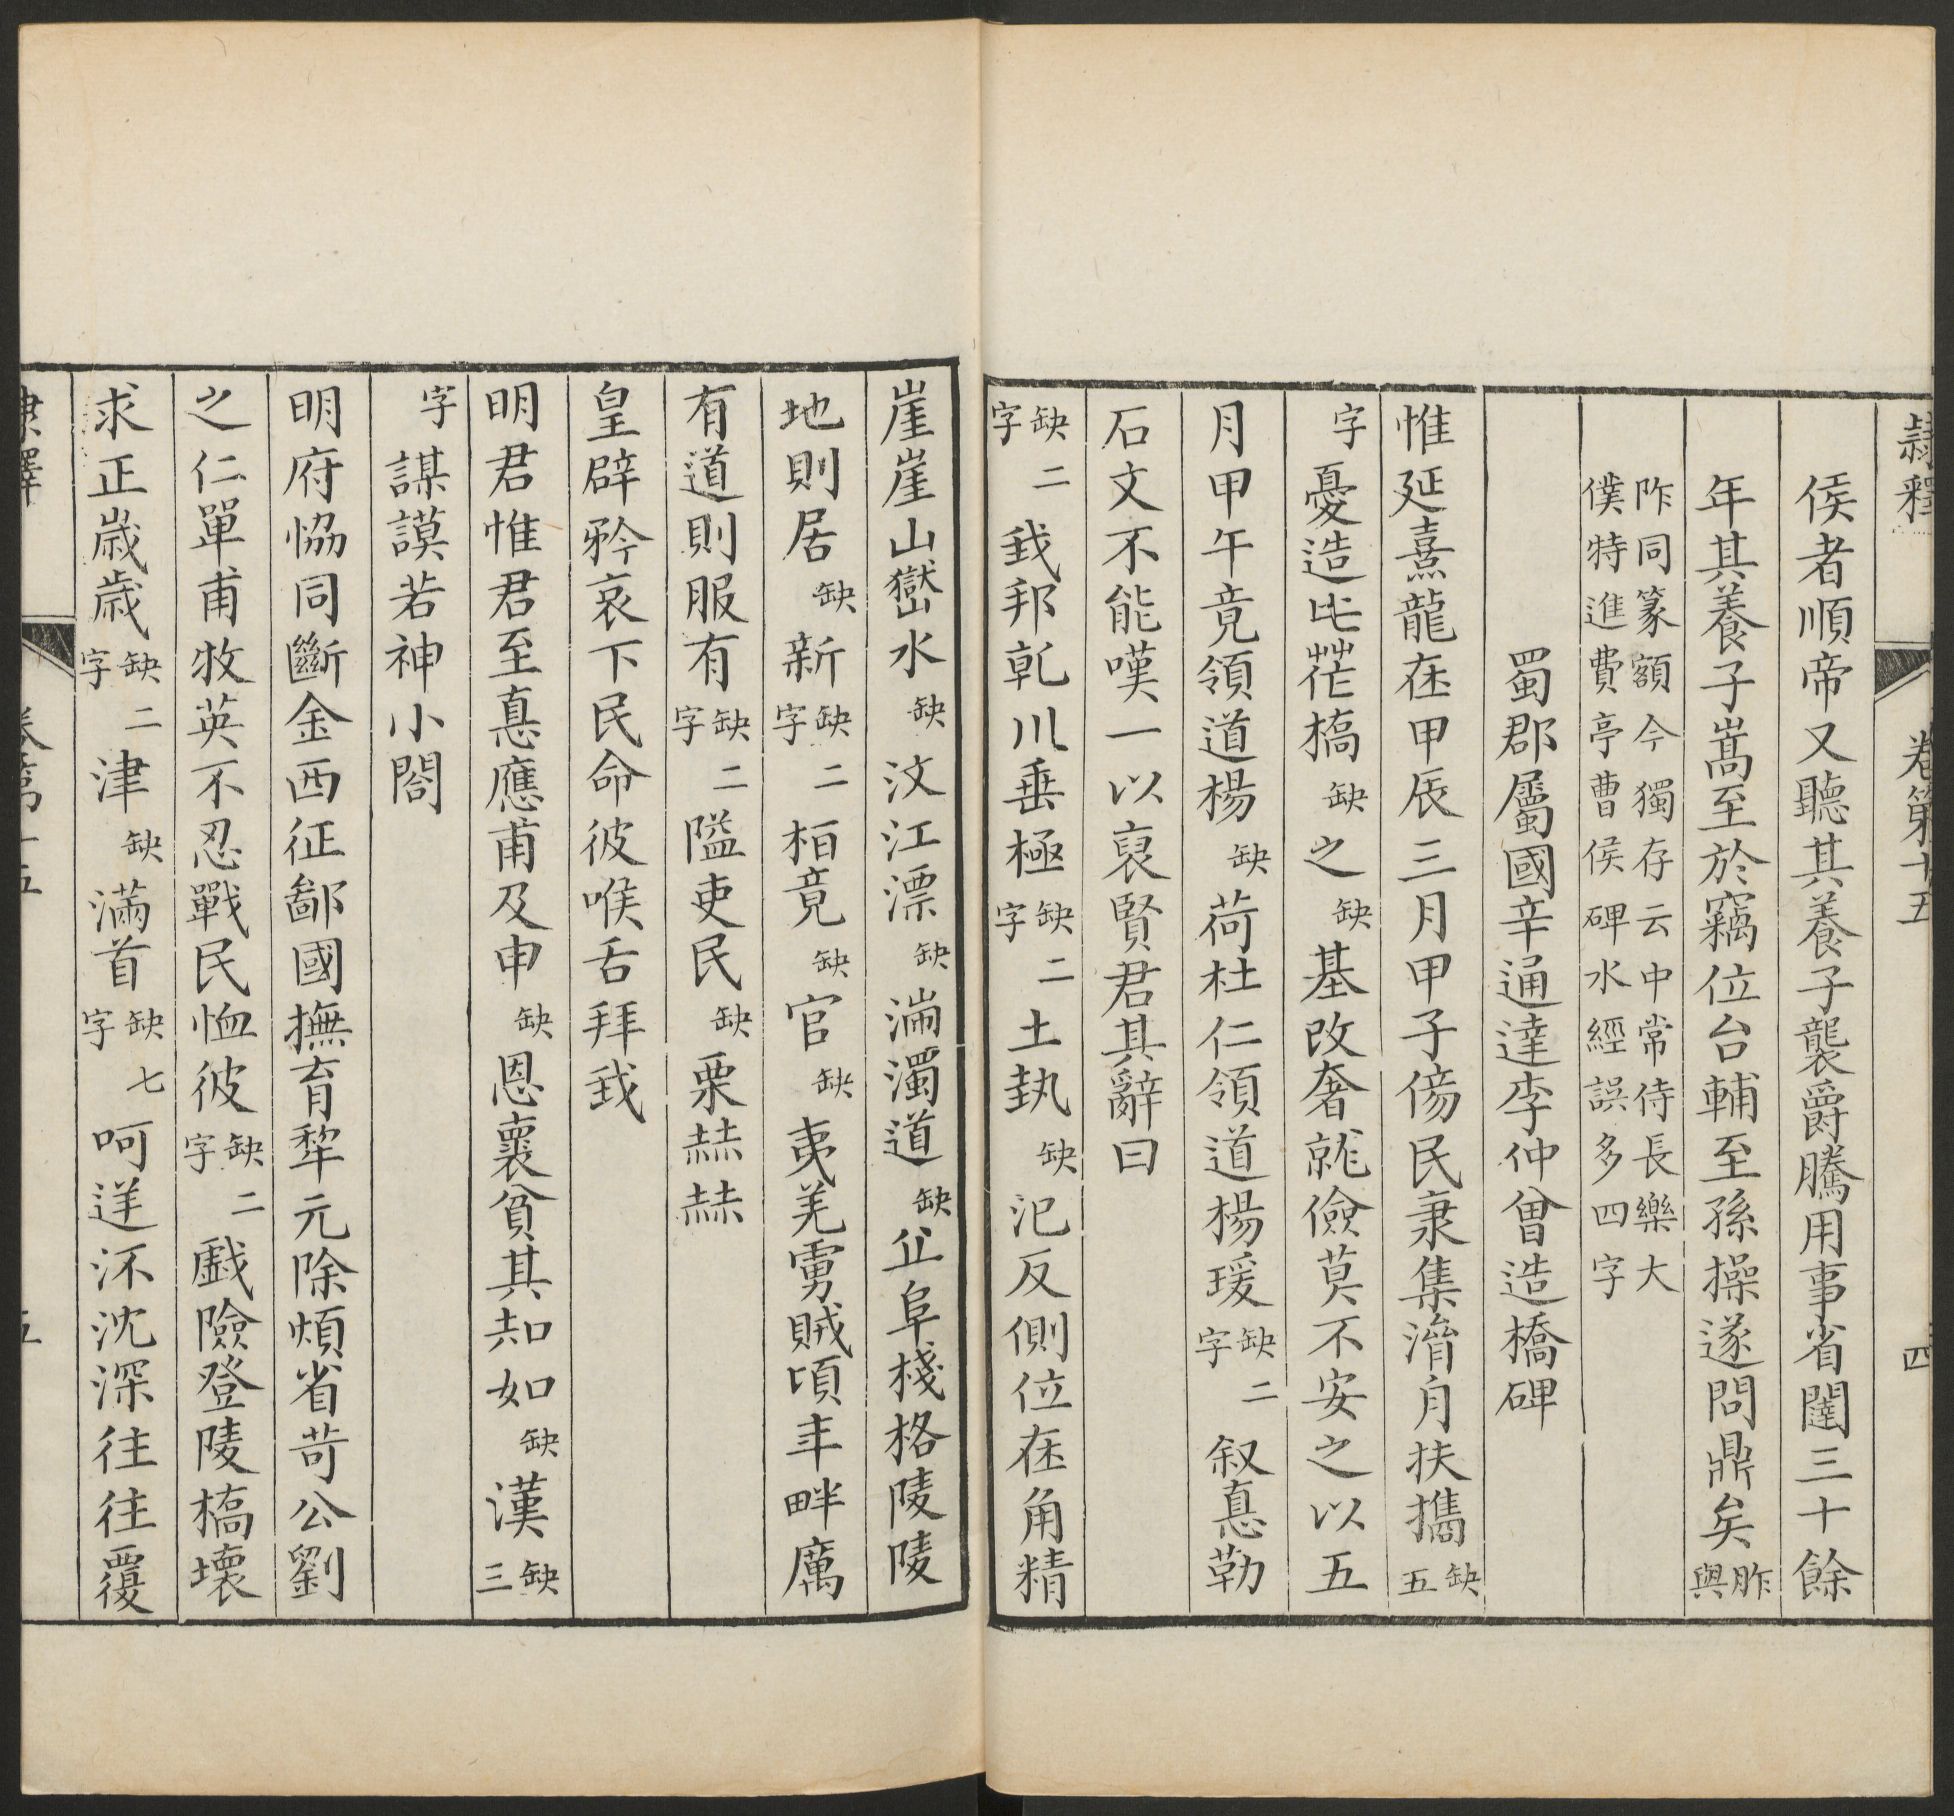 隷釋 卷第十五 四
侯者順帝又聽其養子襲爵騰用事省闥三十餘
年其養子嵩至於竊位台輔至孫操遂問鼎矣胙與
胙同篆額今獨存云中常侍長樂大
僕特進費亭曹侯碑水經誤多四字
蜀郡屬國辛通達李仲曾造橋碑
惟延熹龍在甲辰三月甲子傷民隶集渞舟扶攜缺五
字憂造此茫槗缺之缺基改奢就儉莫不安之以五
月甲午竟領道楊缺荷杜仁領道楊瑗缺二字叙悳勒
石文不能嘆一以裒賢君其辭曰
缺二字我邦乹川垂極缺二字土埶缺氾反側位在角精
崖崖山嶽水缺汶江漂缺湍濁道缺㐀阜棧格陵陵
地則居缺新缺二字栢竟缺官缺夷羌虜賊頃年畔厲
有道則服有缺二字隘吏民缺栗赫赫
皇辟矜哀下民命彼喉舌拜我
明君惟君至悳應甫及申缺恩襄貧其知如缺漢缺三
字謀謨若神小閤
明府恊同斷金西征鄙國撫育犂元除煩省苛公劉
之仁單甫牧英不忍戰民恤彼缺二字戲險登陵槗壞
求正歲歲缺二字津缺滿首缺七字呵逆泝沈深往往覆
隷釋 卷第十五 五